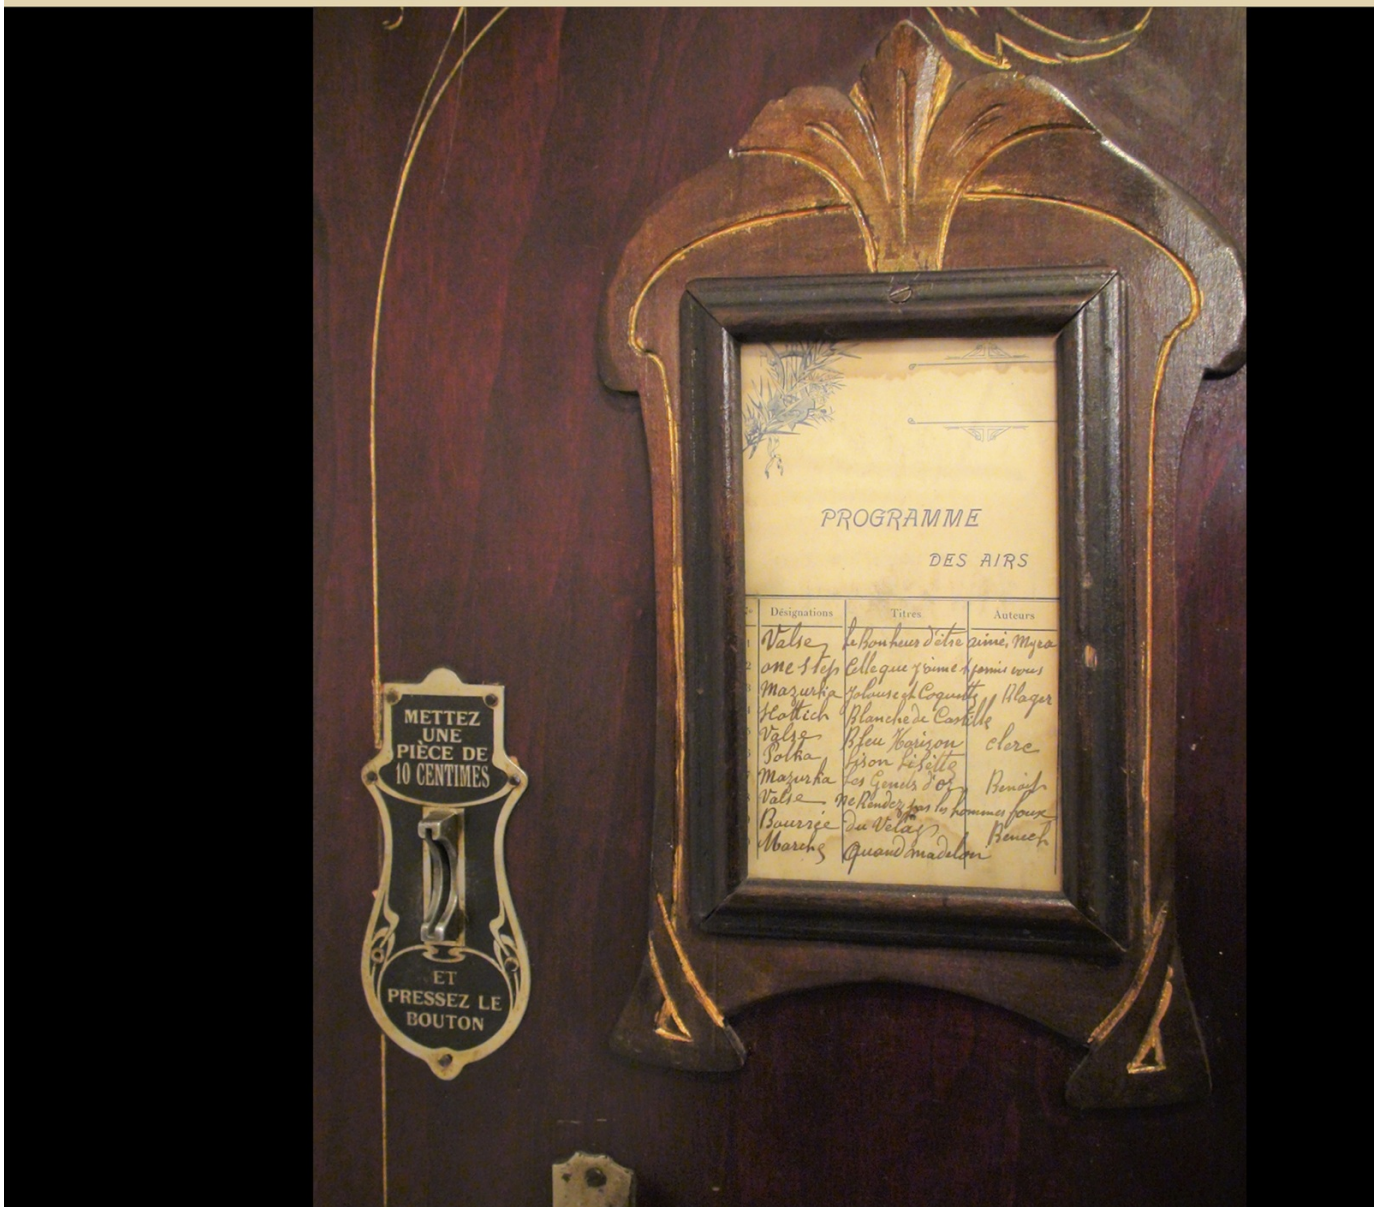 METTEZ
UNE
PIÈCE DE
10 CENTIMES
ET
PRESSEZ LE
BOUTON
PROGRAMME
DES AIRS
Désignations Titres Auteurs
Valse le Bonheur d'être aimé, Myra
one Step Celle que j'aime parmi vous
Mazurka Jalouse et Coquette
Blanche de Castille
Valse Bleu Horizon clerc
Polka Lison Lisette
Mazurka Les Genets d'or Benoit
Valse ne Rendez pas les hommes foux
Bourrée du Velay Benech
Marche Quand madelon